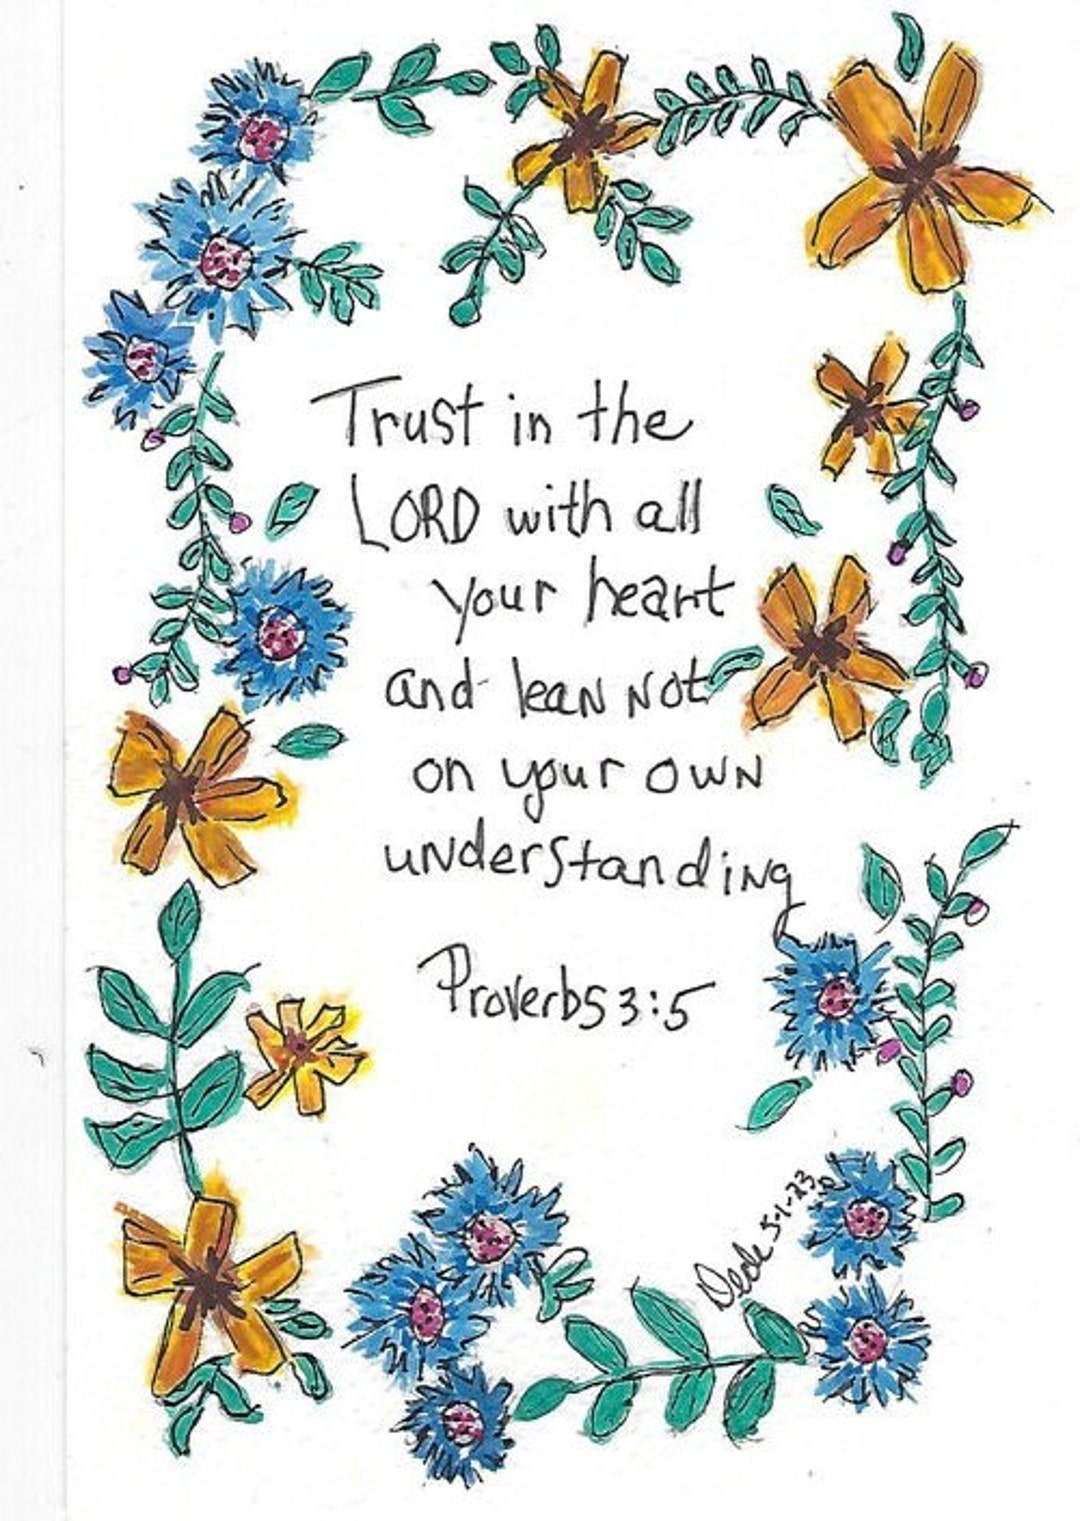 Trust in the
LORD with all
your heart
and lean not
on your own
understanding
Proverbs 3:5
Dede 5-1-23